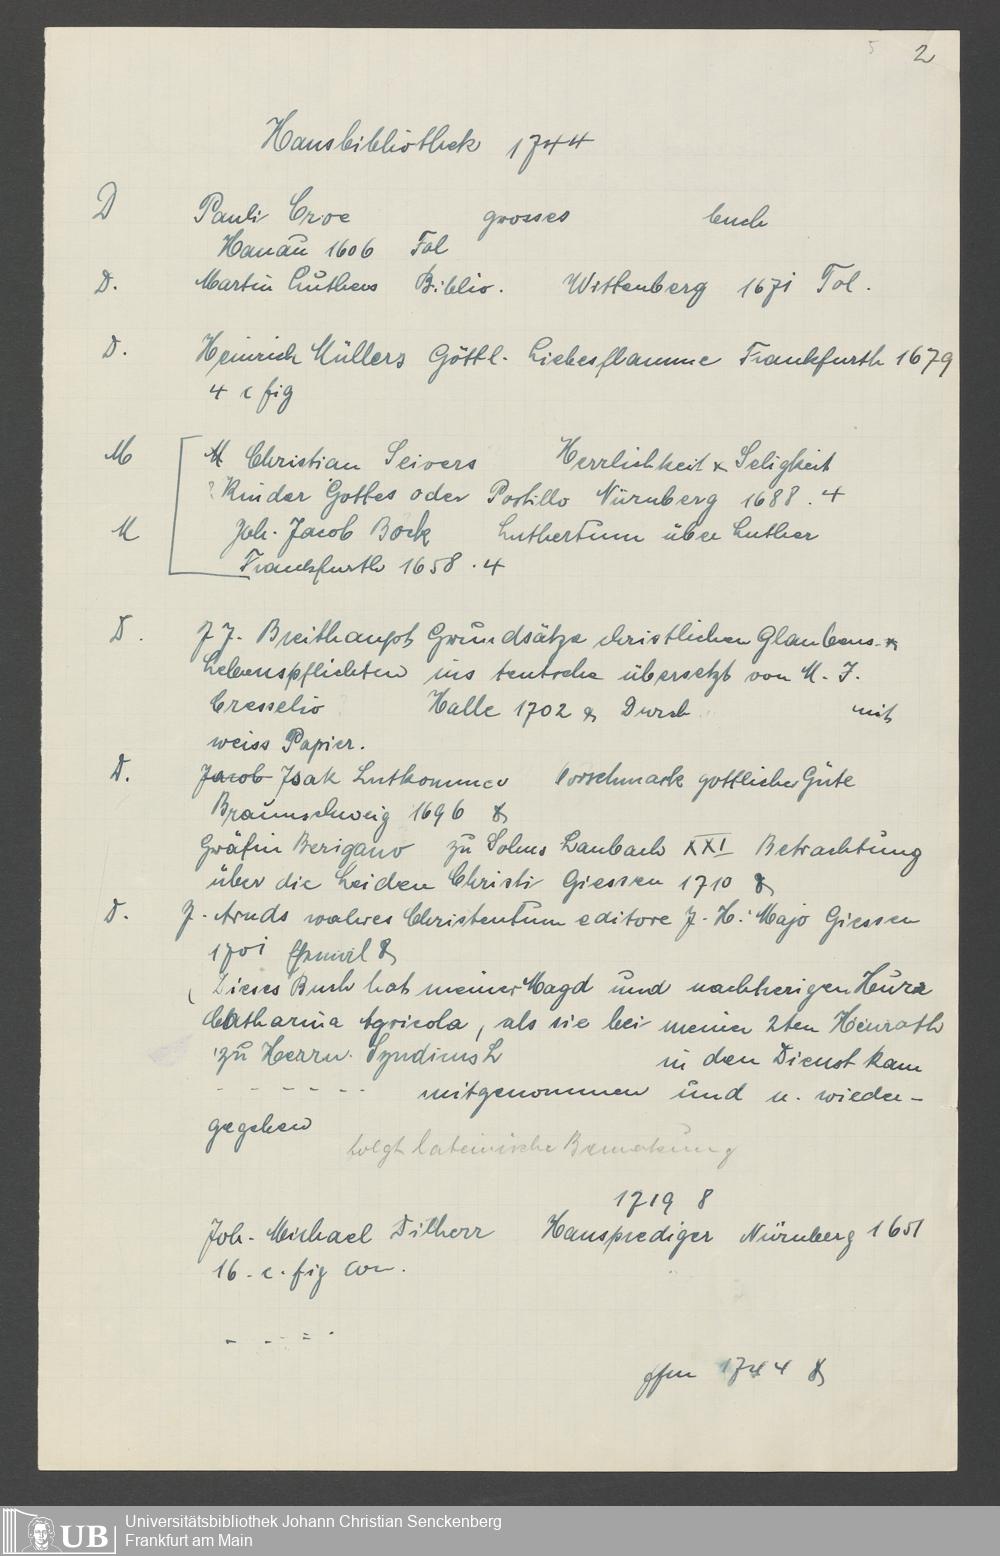 2
Hausbibliothek 1744
D Pauli Croe grosses buch
Hanau 1606 Fol
D. Martin Luthers Biblio. Wittenberg 1671 Fol.
D. Heinrich Müllers Göttl. Liebesflamme Frankfurth 1679
4 c fig
M M Christian Seivers Herrlichkeit & Seligkeit
Kinder Gottes oder Postillo Nürnberg 1688. 4
M Joh. Jacob Bock Luthertum über Luther
Frankfurth 1658. 4
D. J J. Breithaupt Grundsätze christlichen Glaubens- &
Lebenspflichten ins teutsche übersetzt von M. J.
Cresselio Halle 1702 8 Durch mit
weiss Papier.
D. Jacob Isak Lutkommer Vorschmack gottlicher Güte
Braunschweig 1696 8
Gräfin Berigano zu Solms Laubach XXI Betrachtung
über die Leiden Christi Giessen 1710 8
D. J. Arnds wahres Christentum editore J. H. Majo Giessen
1701 8
(Dieses Buch hat meiner Magd und nachherigen Hure
Catharina Agricola, als sie bei meiner 2ten Heurath
zu Herrn Syndicus L in den Dienst kam
- - - - - - mitgenommen und n. wieder-
gegeben
folgt lateinische Bemerkung
1719 8
Joh. Michael Dilherr Hausprediger Nürnberg 1651
16. c. fig
- - - = -
ffm 1744 8
Universitätsbibliothek Johann Christian Senckenberg
UB Frankfurt am Main